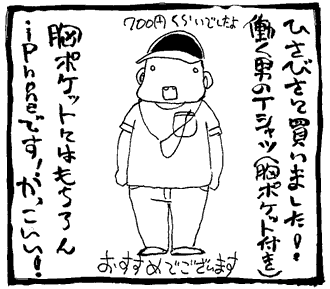 700円くらいでしたよ
ひさびさに買いました!!
働く男のTシャツ(胸ポケット付き)
胸ポケットにはもちろん
iPhoneです!かっこいい!
おすすめでございます